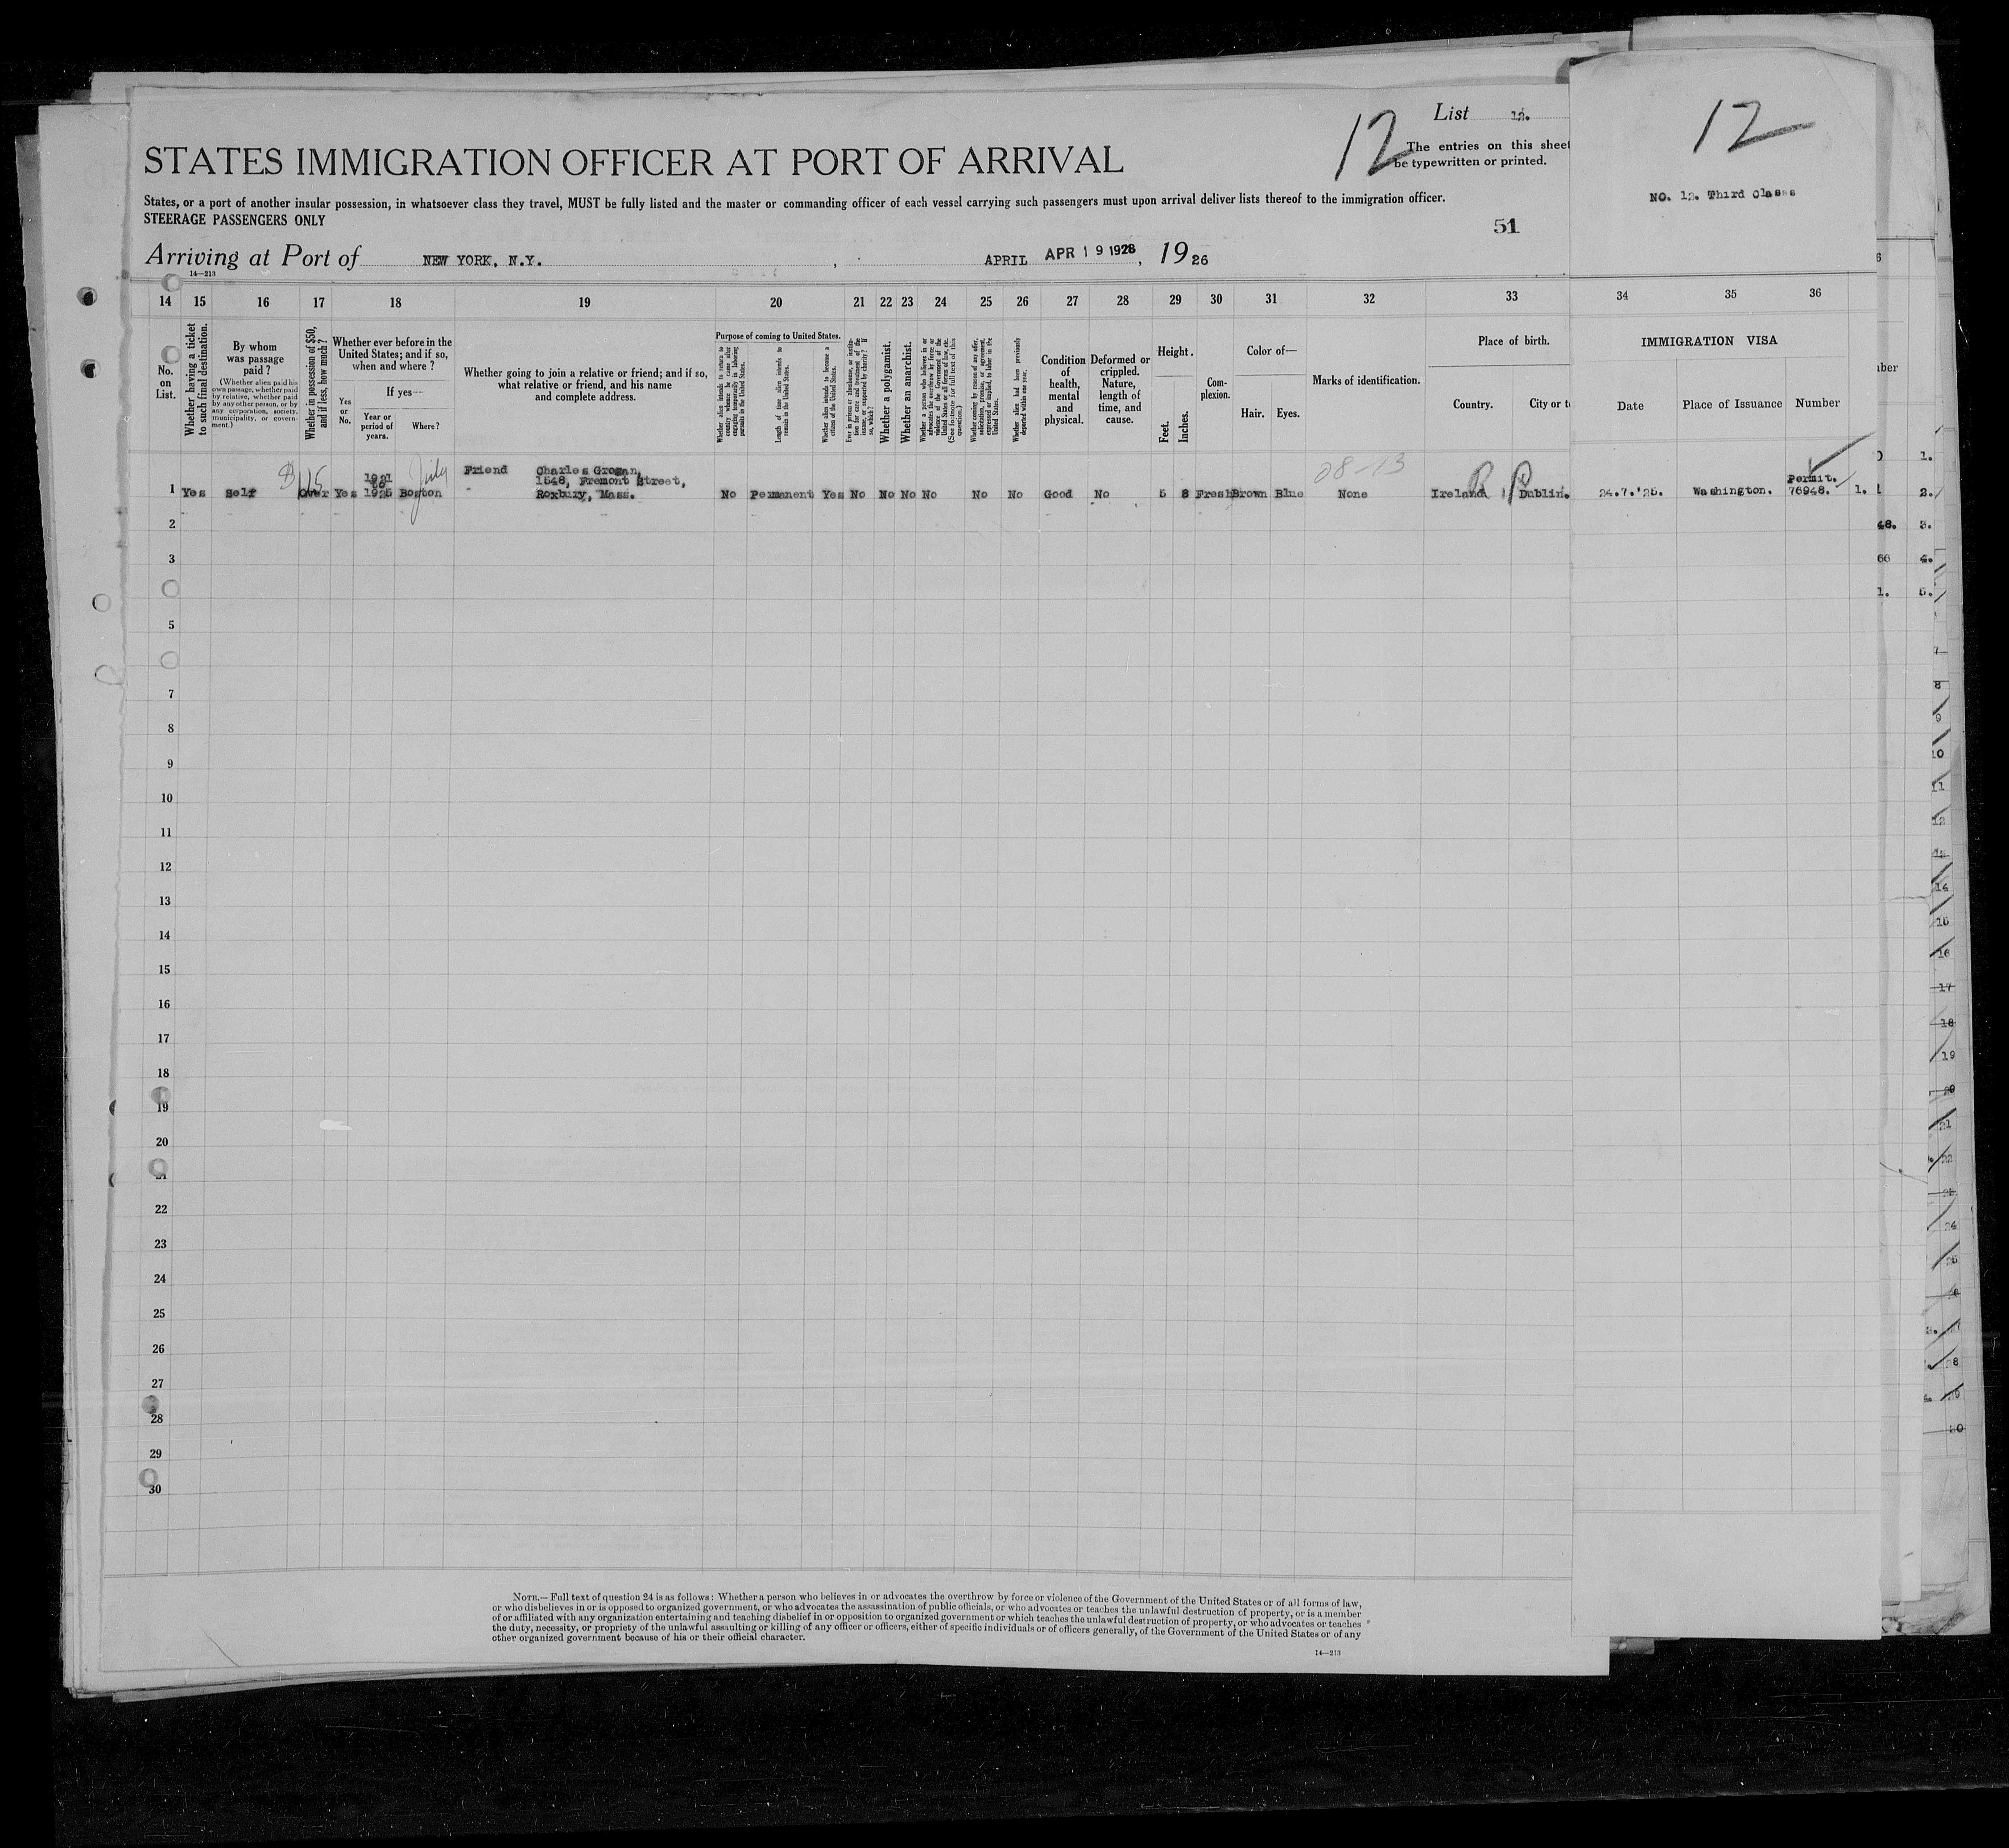 List 12.
12
The entries on this sheet
be typewritten or printed.
STATES IMMIGRATION OFFICER AT PORT OF ARRIVAL
States, or a port of another insular possession, in whatsoever class they travel, MUST be fully listed and the master or commanding officer of each vessel carrying such passengers must upon arrival deliver lists thereof to the immigration officer.
STEERAGE PASSENGERS ONLY
51
Arriving at Port of NEW YORK, N.Y. , APRIL APR 19 1926 , 1926
14—213
12
NO. 12. Third Class
14 15 16 17 18 19 20 21 22 23 24 25 26 27 28 29 30 31 32 33 34 35 36
No. on List.
Whether having a ticket to such final destination.
By whom was passage paid?
(Whether alien paid his own passage, whether paid by relative, whether paid by any other person, or by any corporation, society, municipality, or government.)
Whether in possession of $50, and if less, how much?
Whether ever before in the United States; and if so, when and where?
Yes or No.
If yes—
Year or period of years.
Where?
Whether going to join a relative or friend; and if so, what relative or friend, and his name and complete address.
Purpose of coming to United States.
Whether alien intends to return to country whence he came after engaging temporarily in laboring pursuits in the United States.
Length of time alien intends to remain in the United States.
Whether alien intends to become a citizen of the United States.
Ever in prison or almshouse, or institution for care and treatment of the insane, or supported by charity? If so, which?
Whether a polygamist.
Whether an anarchist.
Whether a person who believes in or advocates the overthrow by force or violence of the Government of the United States or all forms of law, etc. (See footnote for full text of this question.)
Whether coming by reason of any offer, solicitation, promise, or agreement, expressed or implied, to labor in the United States.
Whether alien had been previously deported within one year.
Condition of health, mental and physical.
Deformed or crippled. Nature, length of time, and cause.
Height.
Feet. Inches.
Complexion.
Color of—
Hair. Eyes.
Marks of identification.
Place of birth.
Country. City or to
IMMIGRATION VISA
Date Place of Issuance Number
1 Yes Self Over Yes 1921 to 1925 Boston July Friend Charles Grogan, 1548, Fremont Street, Roxbury, Mass. No Permanent Yes No No No No No No Good No 5 8 Fresh Brown Blue None Ireland Dublin. 24.7.'25. Washington. Permit. 76948. 1.
08-13
2
3
5
7
8
9
10
11
12
13
14
15
16
17
18
19
20
21
22
23
24
25
26
27
28
29
30
NOTE.—Full text of question 24 is as follows: Whether a person who believes in or advocates the overthrow by force or violence of the Government of the United States or of all forms of law,
or who disbelieves in or is opposed to organized government, or who advocates the assassination of public officials, or who advocates or teaches the unlawful destruction of property, or is a member
of or affiliated with any organization entertaining and teaching disbelief in or opposition to organized government or which teaches the unlawful destruction of property, or who advocates or teaches
the duty, necessity, or propriety of the unlawful assaulting or killing of any officer or officers, either of specific individuals or of officers generally, of the Government of the United States or of any
other organized government because of his or their official character.
14—213